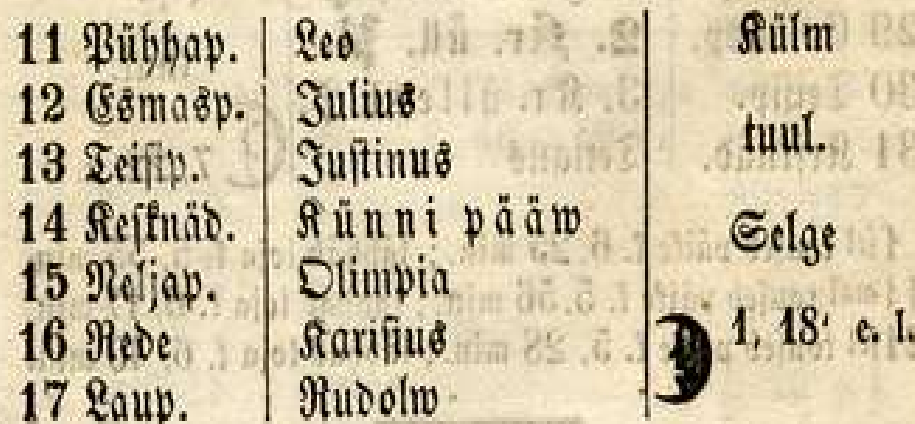 11 Pühhap. Leo Külm
12 Esmasp. Julius
tuul.
13 Teisip. Justinus
14 Keſknäd. Künni pääw Selge
15 Neljap. Olimpia
16 Rede Karisius 1, 18' e. l.
17 Laup. Rudolw